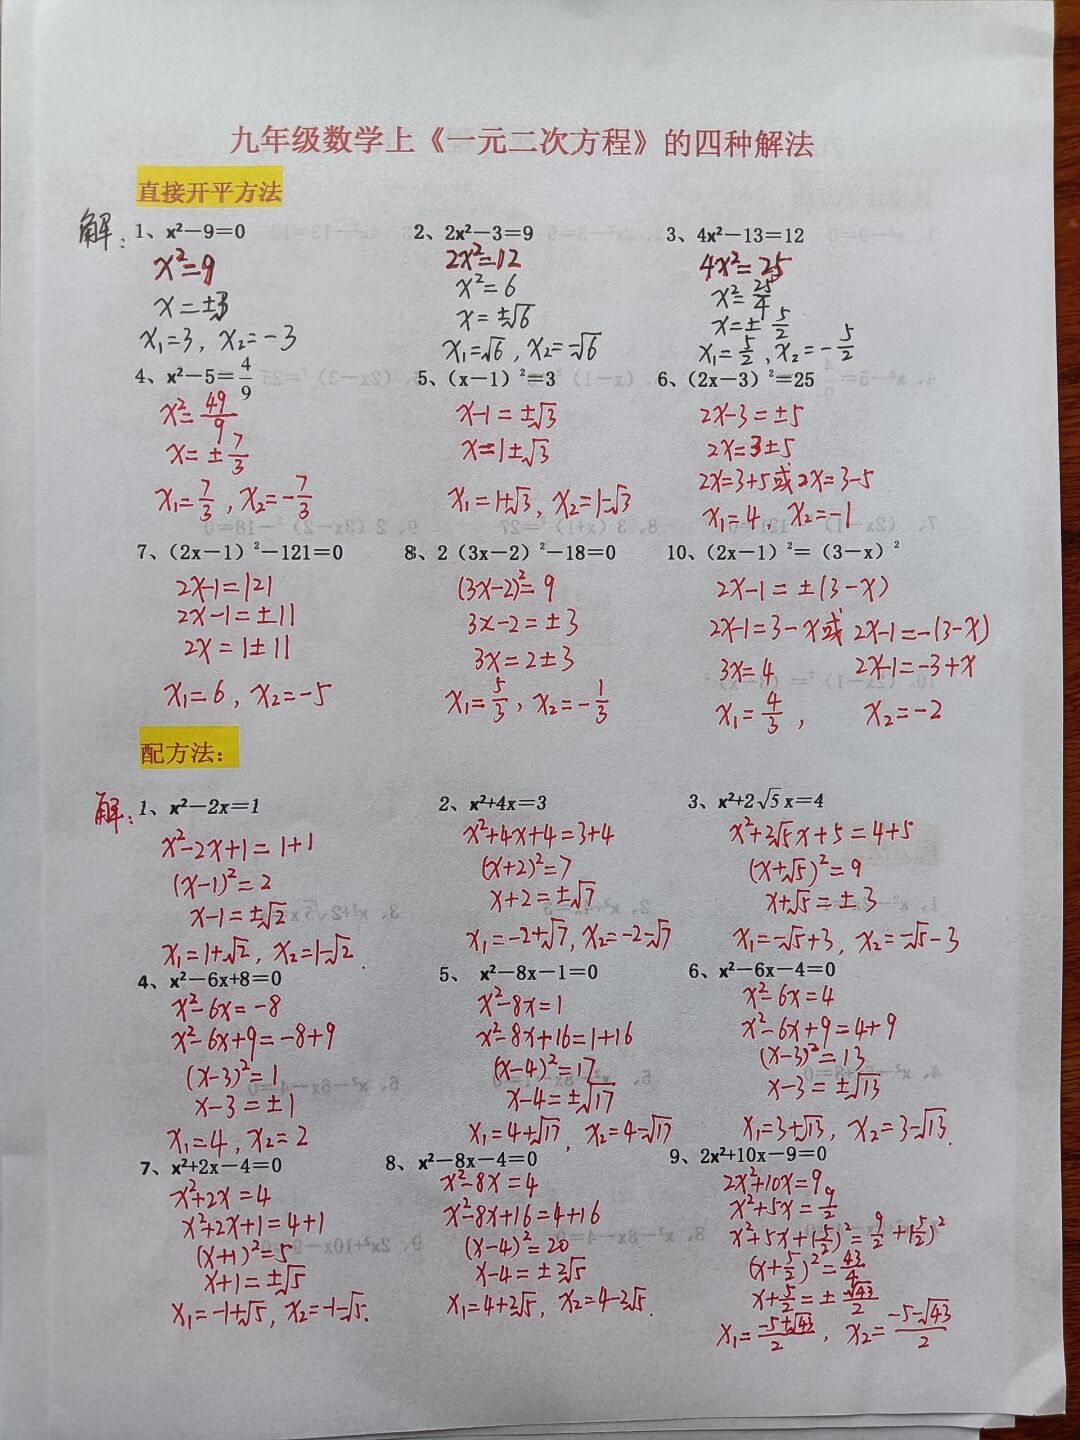 九年级数学上《一元二次方程》的四种解法
直接开平方法
解：
1、x²－9＝0
x²=9
x=±3
x₁=3, x₂=-3
2、2x²－3＝9
2x²=12
x²=6
x=±√6
x₁=√6, x₂=-√6
3、4x²－13＝12
4x²=25
x²=25/4
x=±5/2
x₁=5/2, x₂=-5/2
4、x²－5＝4/9
x²=49/9
x=±7/3
x₁=7/3, x₂=-7/3
5、（x－1）²＝3
x-1=±√3
x=1±√3
x₁=1+√3, x₂=1-√3
6、（2x－3）²＝25
2x-3=±5
2x=3±5
2x=3+5或2x=3-5
x₁=4, x₂=-1
7、（2x－1）²－121＝0
2x-1=121
2x-1=±11
2x=1±11
x₁=6, x₂=-5
8、2（3x－2）²－18＝0
(3x-2)²=9
3x-2=±3
3x=2±3
x₁=5/3, x₂=-1/3
10、（2x－1）²＝（3－x）²
2x-1=±(3-x)
2x-1=3-x或 2x-1=-(3-x)
3x=4 2x-1=-3+x
x₁=4/3, x₂=-2
配方法：
解：
1、x²－2x＝1
x²-2x+1=1+1
(x-1)²=2
x-1=±√2
x₁=1+√2, x₂=1-√2.
2、x²+4x＝3
x²+4x+4=3+4
(x+2)²=7
x+2=±√7
x₁=-2+√7, x₂=-2-√7
3、x²+2√5x＝4
x²+2√5x+5=4+5
(x+√5)²=9
x+√5=±3
x₁=-√5+3, x₂=-√5-3
4、x²－6x+8＝0
x²-6x=-8
x²-6x+9=-8+9
(x-3)²=1
x-3=±1
x₁=4, x₂=2
5、 x²－8x－1＝0
x²-8x=1
x²-8x+16=1+16
(x-4)²=17
x-4=±√17
x₁=4+√17, x₂=4-√17
6、x²－6x－4＝0
x²-6x=4
x²-6x+9=4+9
(x-3)²=13
x-3=±√13
x₁=3+√13, x₂=3-√13.
7、x²+2x－4＝0
x²+2x=4
x²+2x+1=4+1
(x+1)²=5
x+1=±√5
x₁=-1+√5, x₂=-1-√5.
8、x²－8x－4＝0
x²-8x=4
x²-8x+16=4+16
(x-4)²=20
x-4=±2√5
x₁=4+2√5, x₂=4-2√5.
9、2x²+10x－9＝0
2x²+10x=9
x²+5x=9/2
x²+5x+(5/2)²=9/2+(5/2)²
(x+5/2)²=43/4
x+5/2=±√43/2
x₁=(-5+√43)/2, x₂=(-5-√43)/2